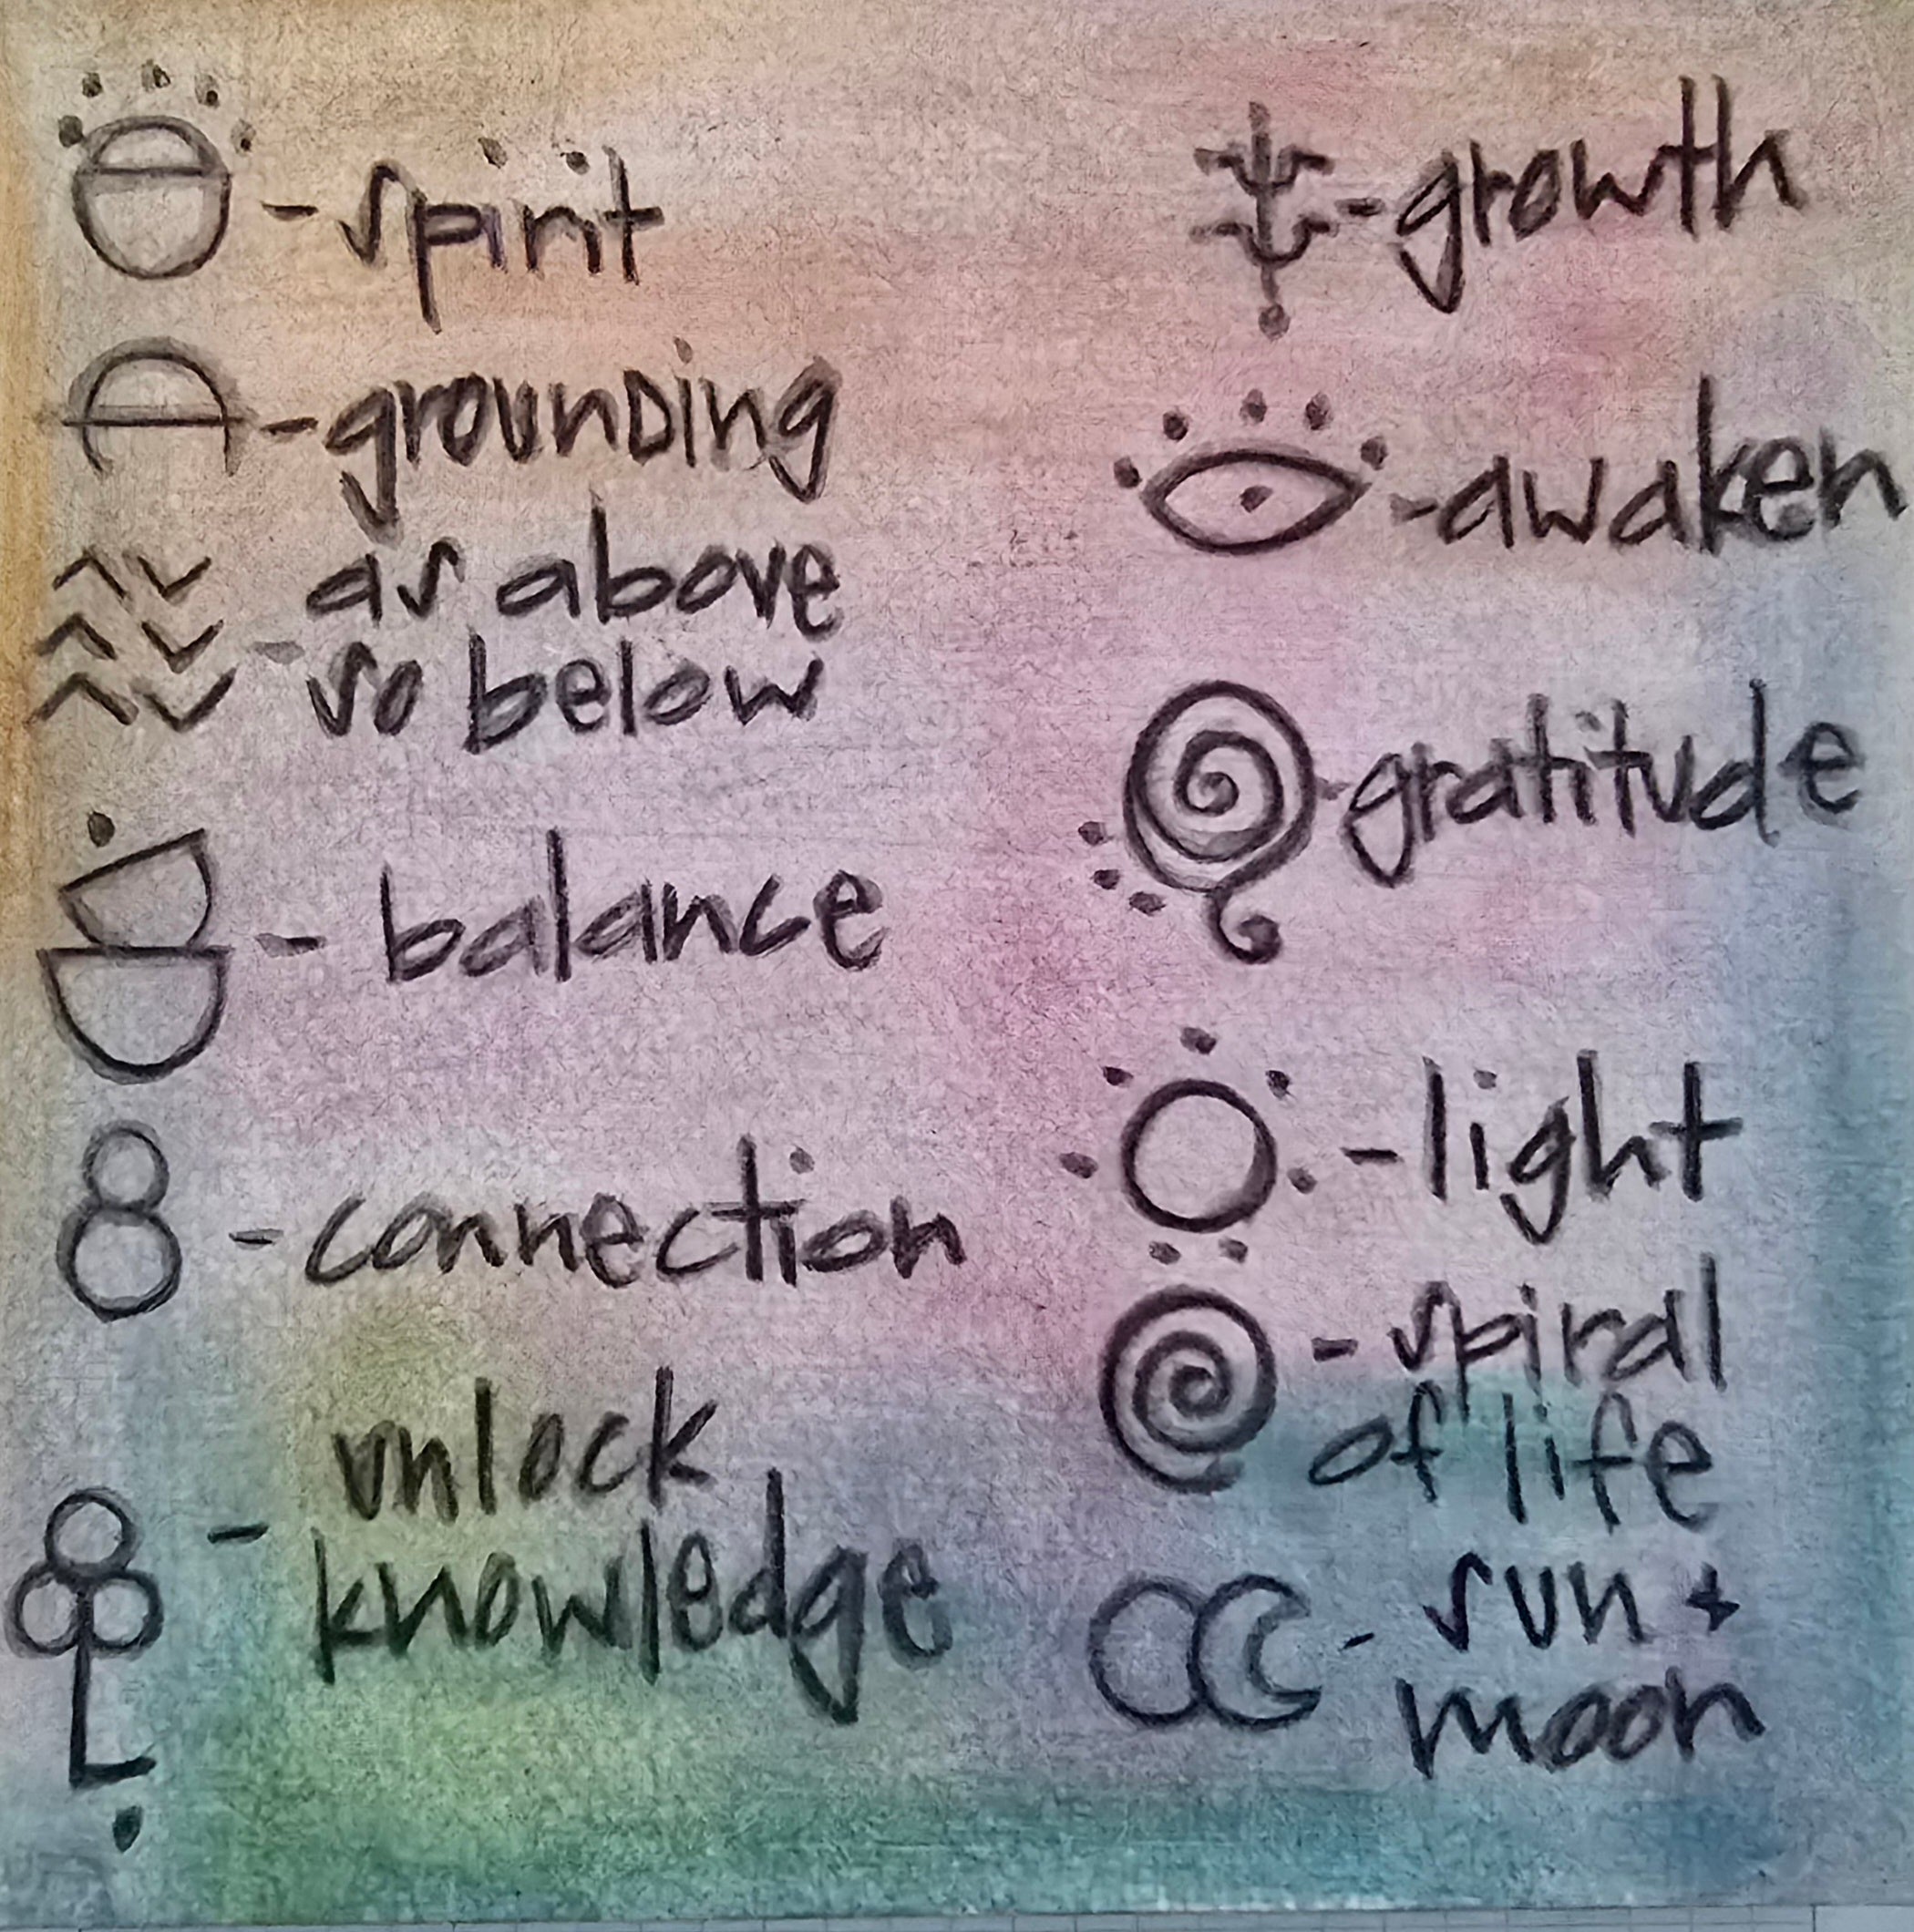 - spirit
- grounDing
as above
- so below
- balance
- connection
unlock
- knowledge
- growth
- awaken
- gratitude
- light
- spiral
of life
- sun +
moon